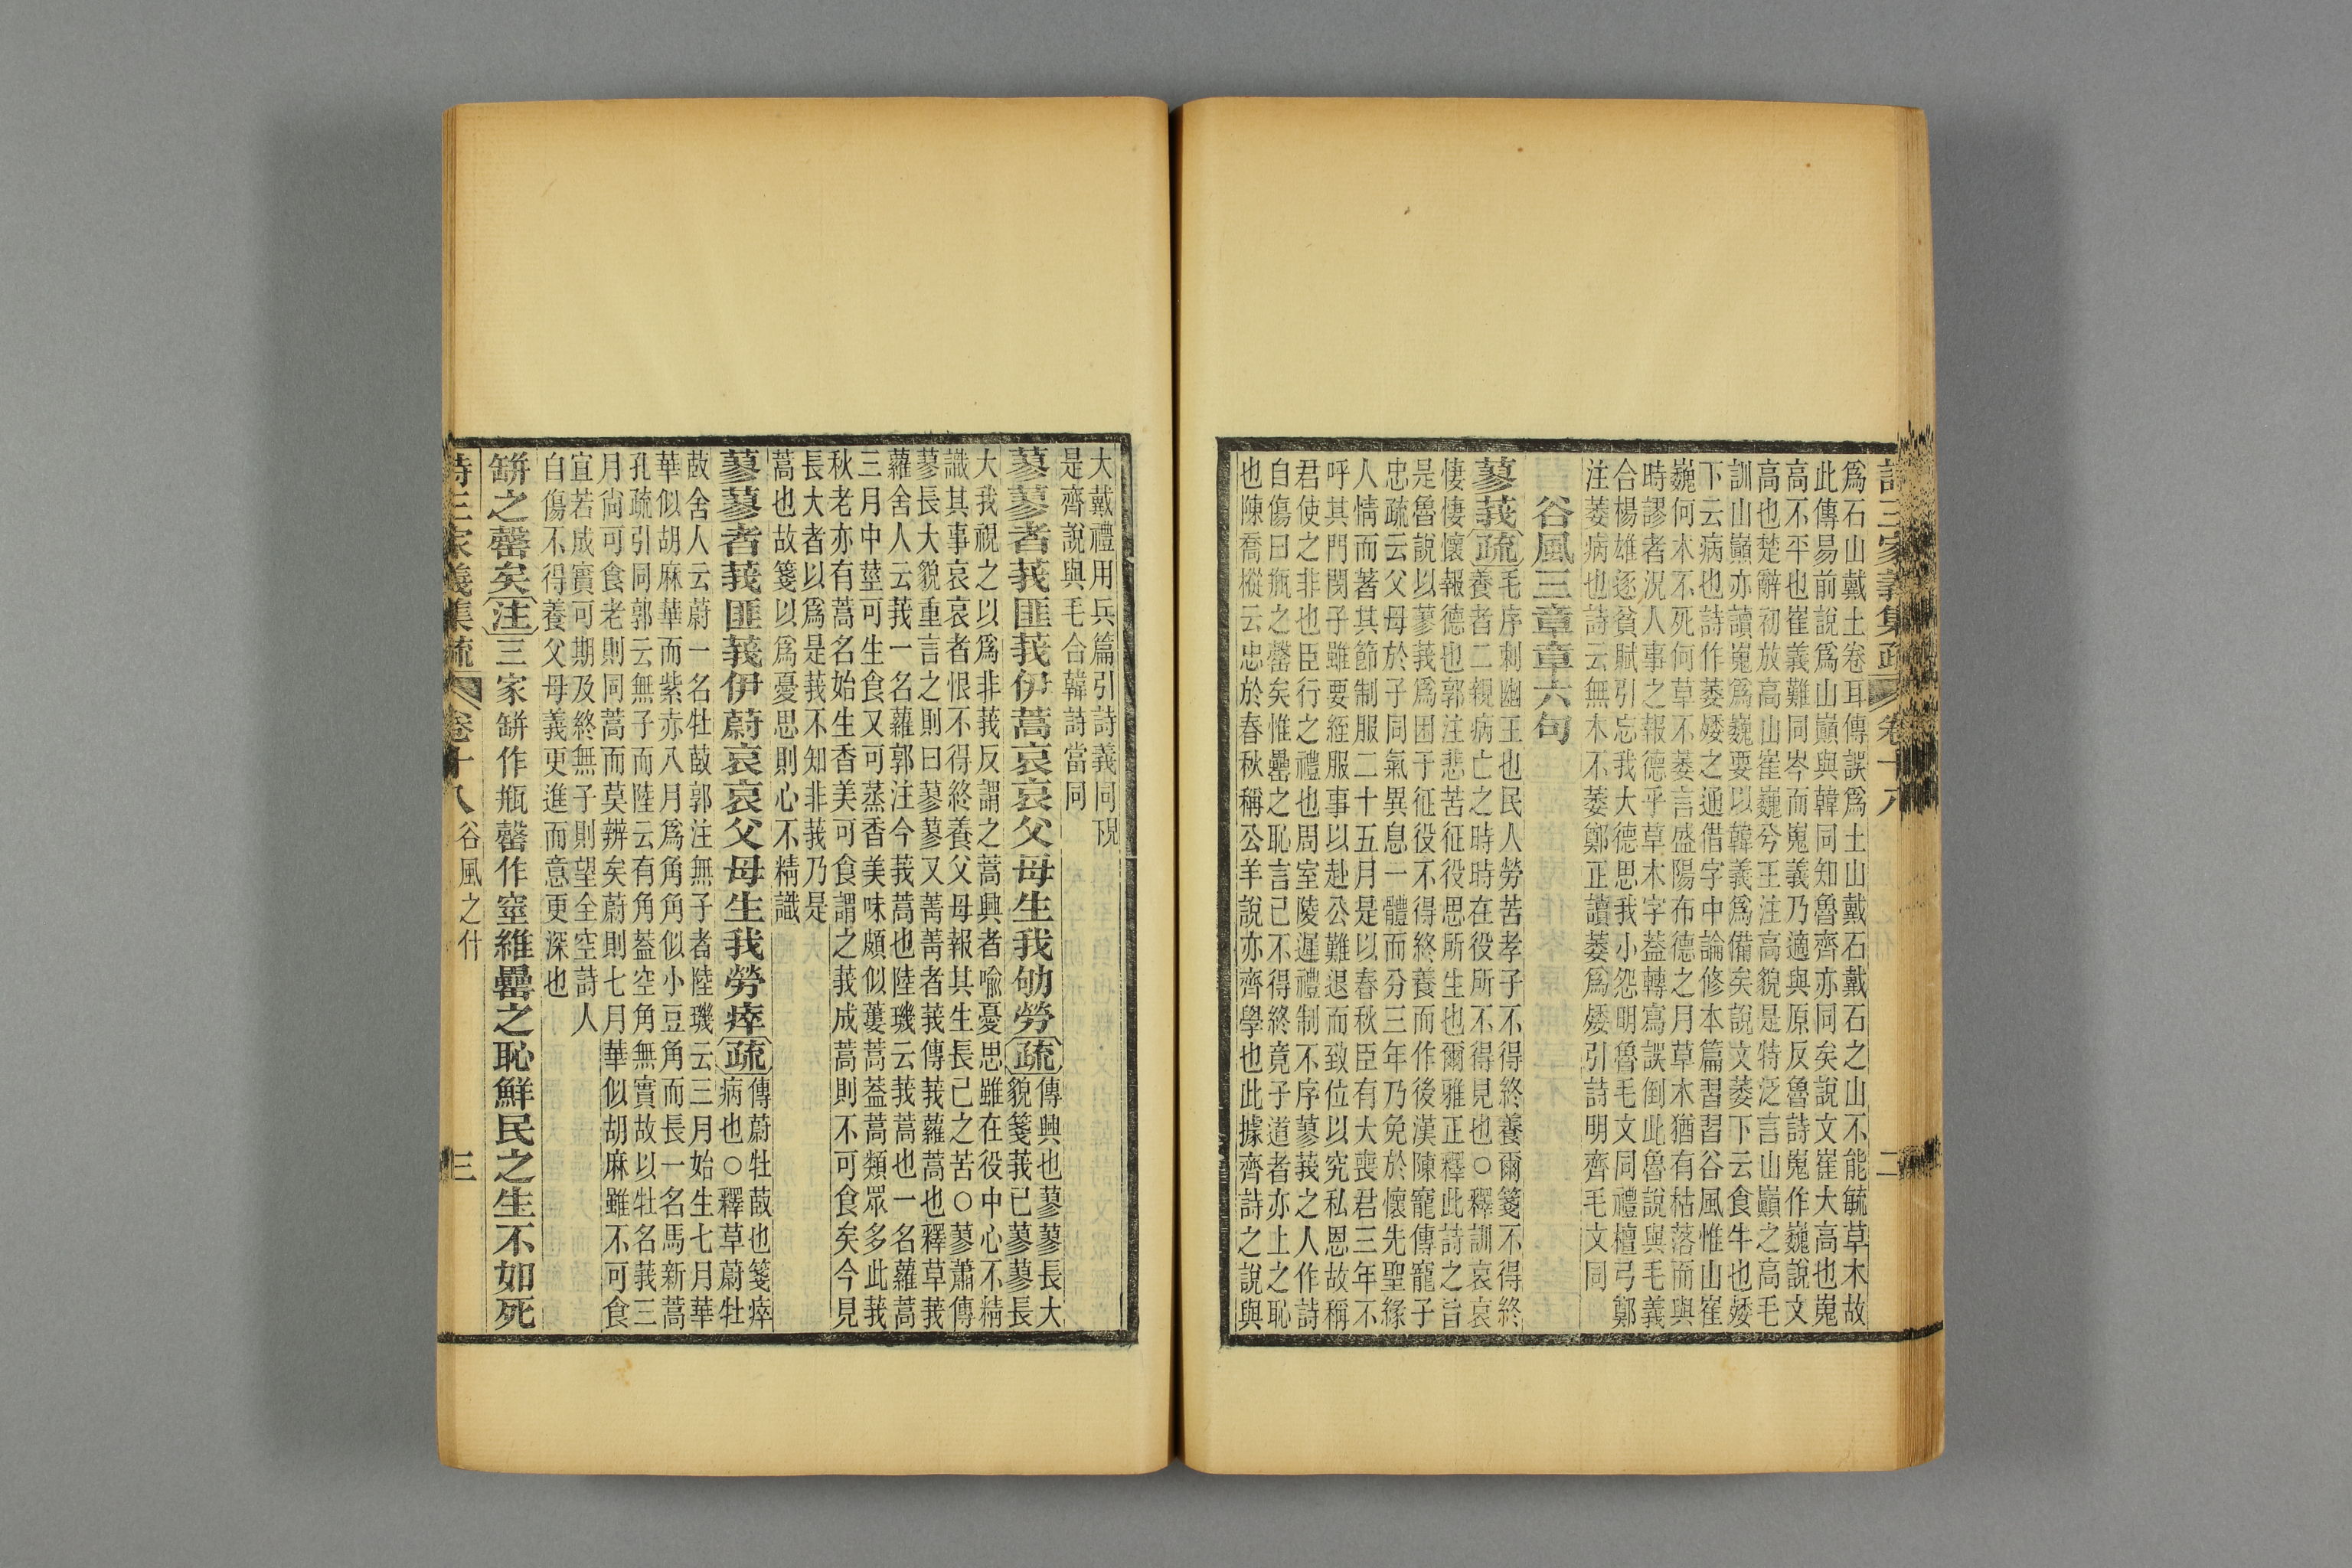 詩三家義集疏 卷十八 二
爲石山戴土卷耳傳誤爲土山戴石戴石之山不能毓草木故
此傳易前說爲山巔與韓同知魯齊亦同矣說文崔大高也嵬
高不平也崔義難同岑而嵬義乃適與原反魯詩嵬作巍說文
高也楚辭初放高山崔巍兮王注高貌是特泛言山巔之高毛
訓山巔亦讀嵬爲巍要以韓義爲備矣說文萎下云食牛也矮
下云病也詩作萎矮之通借字中論修本篇習習谷風惟山崔
巍何木不死何草不萎言盛陽布德之月草木猶有枯落而與
時謬者況人事之報德乎草木字葢轉寫誤倒此魯說與毛義
合楊雄逐貧賦引忘我大德思我小怨明魯毛文同禮檀弓鄭
注萎病也詩云無木不萎鄭正讀萎爲矮引詩明齊毛文同
谷風三章章六句
蓼莪疏
毛序刺幽王也民人勞苦孝子不得終養爾箋不得終
養者二親病亡之時時在役所不得見也○釋訓哀哀
悽悽懷報德也郭注悲苦征役思所生也爾雅正釋此詩之旨
是魯說以蓼莪爲困于征役不得終養而作後漢陳寵傳寵子
忠疏云父母於子同氣異息一體而分三年乃免於懷先聖緣
人情而著其節制服二十五月是以春秋臣有大喪君三年不
呼其門閔子雖要絰服事以赴公難退而致位以究私恩故稱
君使之非也臣行之禮也周室陵遲禮制不序蓼莪之人作詩
自傷曰瓶之罄矣惟罍之恥言已不得終竟子道者亦上之恥
也陳喬樅云忠於春秋稱公羊說亦齊學也此據齊詩之說與
大戴禮用兵篇引詩義同硯
是齊說與毛合韓詩當同
蓼蓼者莪匪莪伊蒿哀哀父母生我劬勞疏
傳興也蓼蓼長大
貌箋莪已蓼蓼長
大我視之以爲非莪反謂之蒿興者喻憂思雖在役中心不精
識其事哀哀者恨不得終養父母報其生長己之苦○蓼蕭傳
蓼長大貌重言之則曰蓼蓼又菁菁者莪傳莪蘿蒿也釋草莪
蘿舍人云莪一名蘿郭注今莪蒿也陸璣云莪蒿也一名蘿蒿
三月中莖可生食又可蒸香美味頗似蔞蒿葢蒿類眾多此莪
秋老亦有蒿名始生香美可食謂之莪成蒿則不可食矣今見
長大者以爲是莪不知非莪乃是
蒿也故箋以爲憂思則心不精識
蓼蓼者莪匪莪伊蔚哀哀父母生我勞瘁疏
傳蔚牡菣也箋瘁
病也○釋草蔚牡
菣舍人云蔚一名牡菣郭注無子者陸璣云三月始生七月華
華似胡麻華而紫赤八月爲角角似小豆角而長一名馬新蒿
孔疏引同郭云無子而陸云有角葢空角無實故以牡名莪三
月尚可食老則同蒿而莫辨矣蔚則七月華似胡麻雖不可食
宜若成實可期及終無子則望全空詩人
自傷不得養父母義更進而意更深也
缾之罄矣注三家缾作瓶罄作窒維罍之恥鮮民之生不如死
詩三家義集疏 卷十八 谷風之什 三